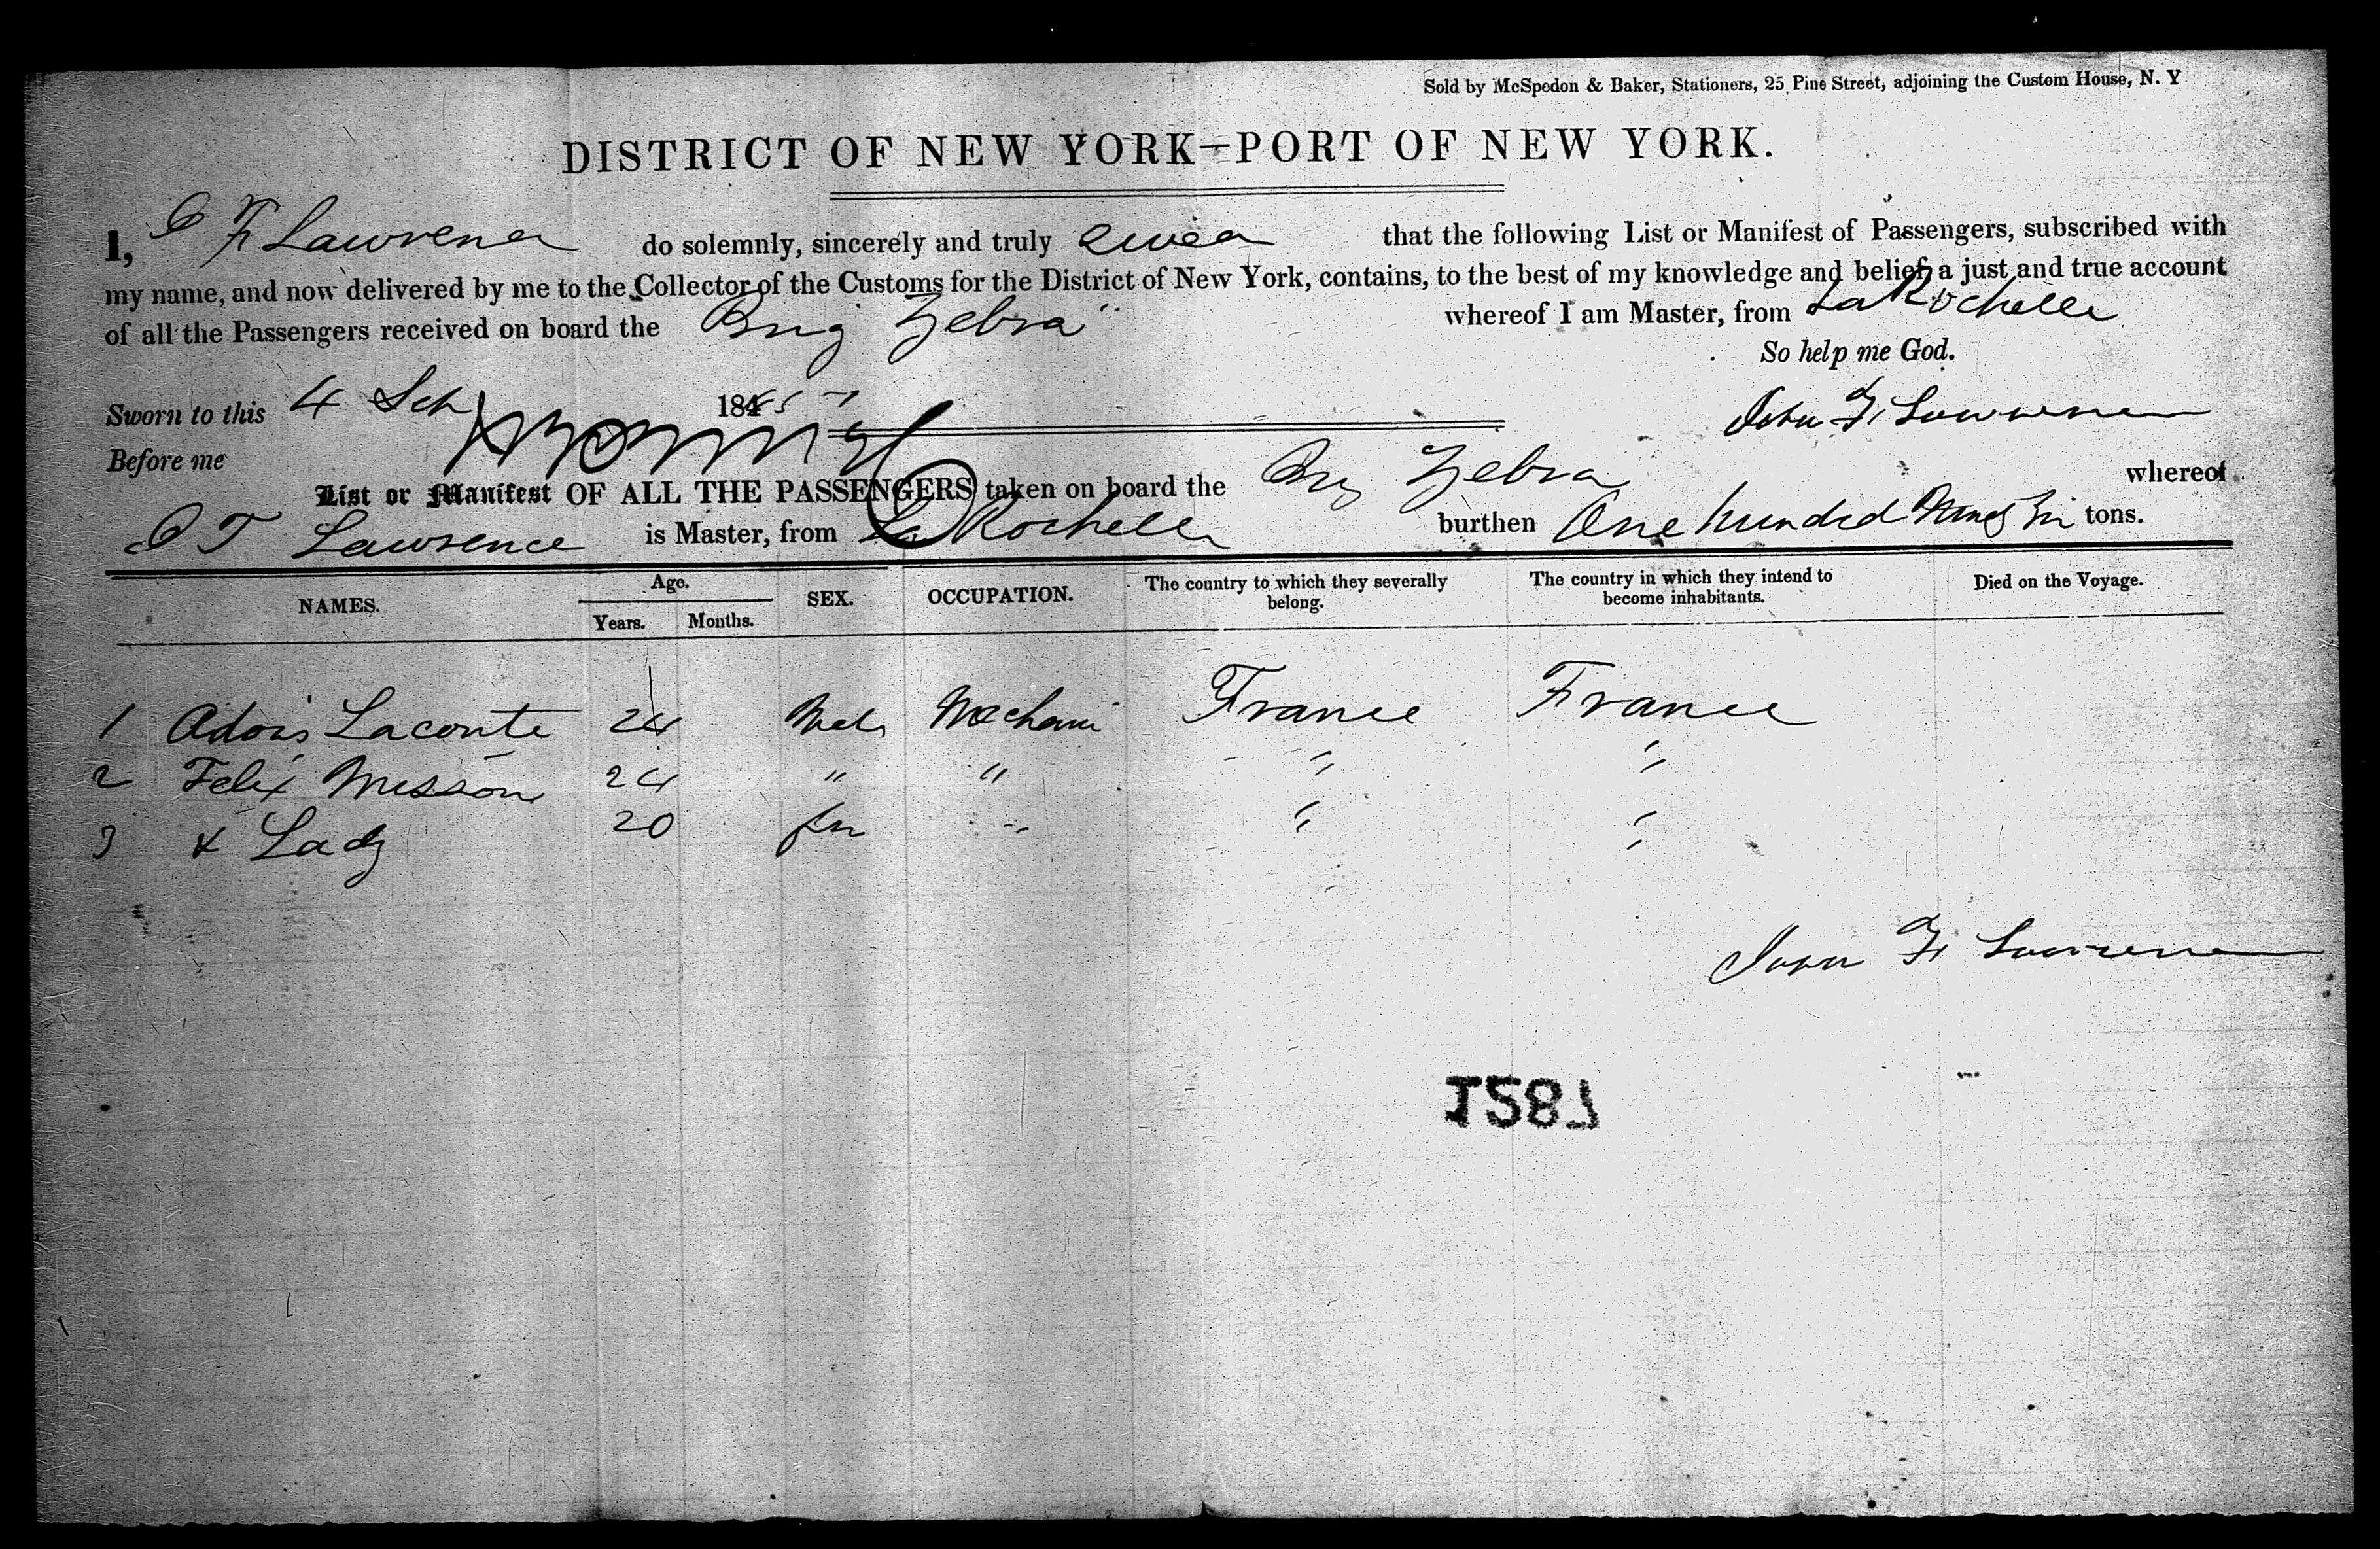 Sold by McSpedon & Baker, Stationers, 25 Pine Street, adjoining the Custom House, N. Y
DISTRICT OF NEW YORK—PORT OF NEW YORK.
I, J F Lawrence do solemnly, sincerely and truly swear that the following List or Manifest of Passengers, subscribed with
my name, and now delivered by me to the Collector of the Customs for the District of New York, contains, to the best of my knowledge and belief, a just and true account
of all the Passengers received on board the Brig "Zebra" whereof I am Master, from La Rochelle
So help me God.
Sworn to this 4 184
John F. Lawrence
Before me
List or Manifest OF ALL THE PASSENGERS taken on board the Brig Zebra whereof
J F Lawrence is Master, from La Rochelle burthen One hundred tons.
NAMES. Age. SEX. OCCUPATION. The country to which they severally belong. The country in which they intend to become inhabitants. Died on the Voyage.
Years. Months.
1 Laconte 24 Male Mechanic France France
2 Felix Messon 24 " " " "
3 & Lady 20 fem " " "
John F. Lawrence
1587